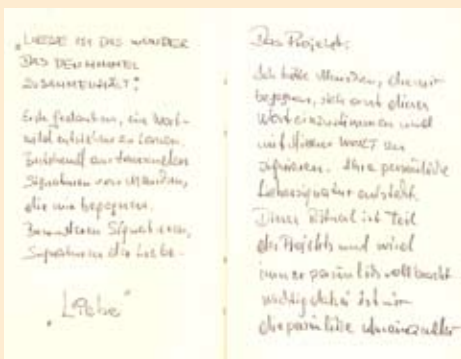 "LIEBE IST DAS WUNDER
DAS DEN HIMMEL
ZUSAMMENHÄLT"
Ein Wort-
entstehen zu lassen.
Bestehend aus tausenden
Signaturen von Menschen,
die mir begegnen.
Signaturen,
Signaturen der Liebe.
"Liebe"
Das Projekt:
Ich bitte Menschen, die mir
begegnen, sich auf dieses
Wort einzustimmen und
mit diesem WORT zu
signieren. Ihre persönliche
entsteht.
Dieses Ritual ist Teil
des Projekts und wird
immer persönlich vollbracht
wichtig dabei ist mir
die persönliche